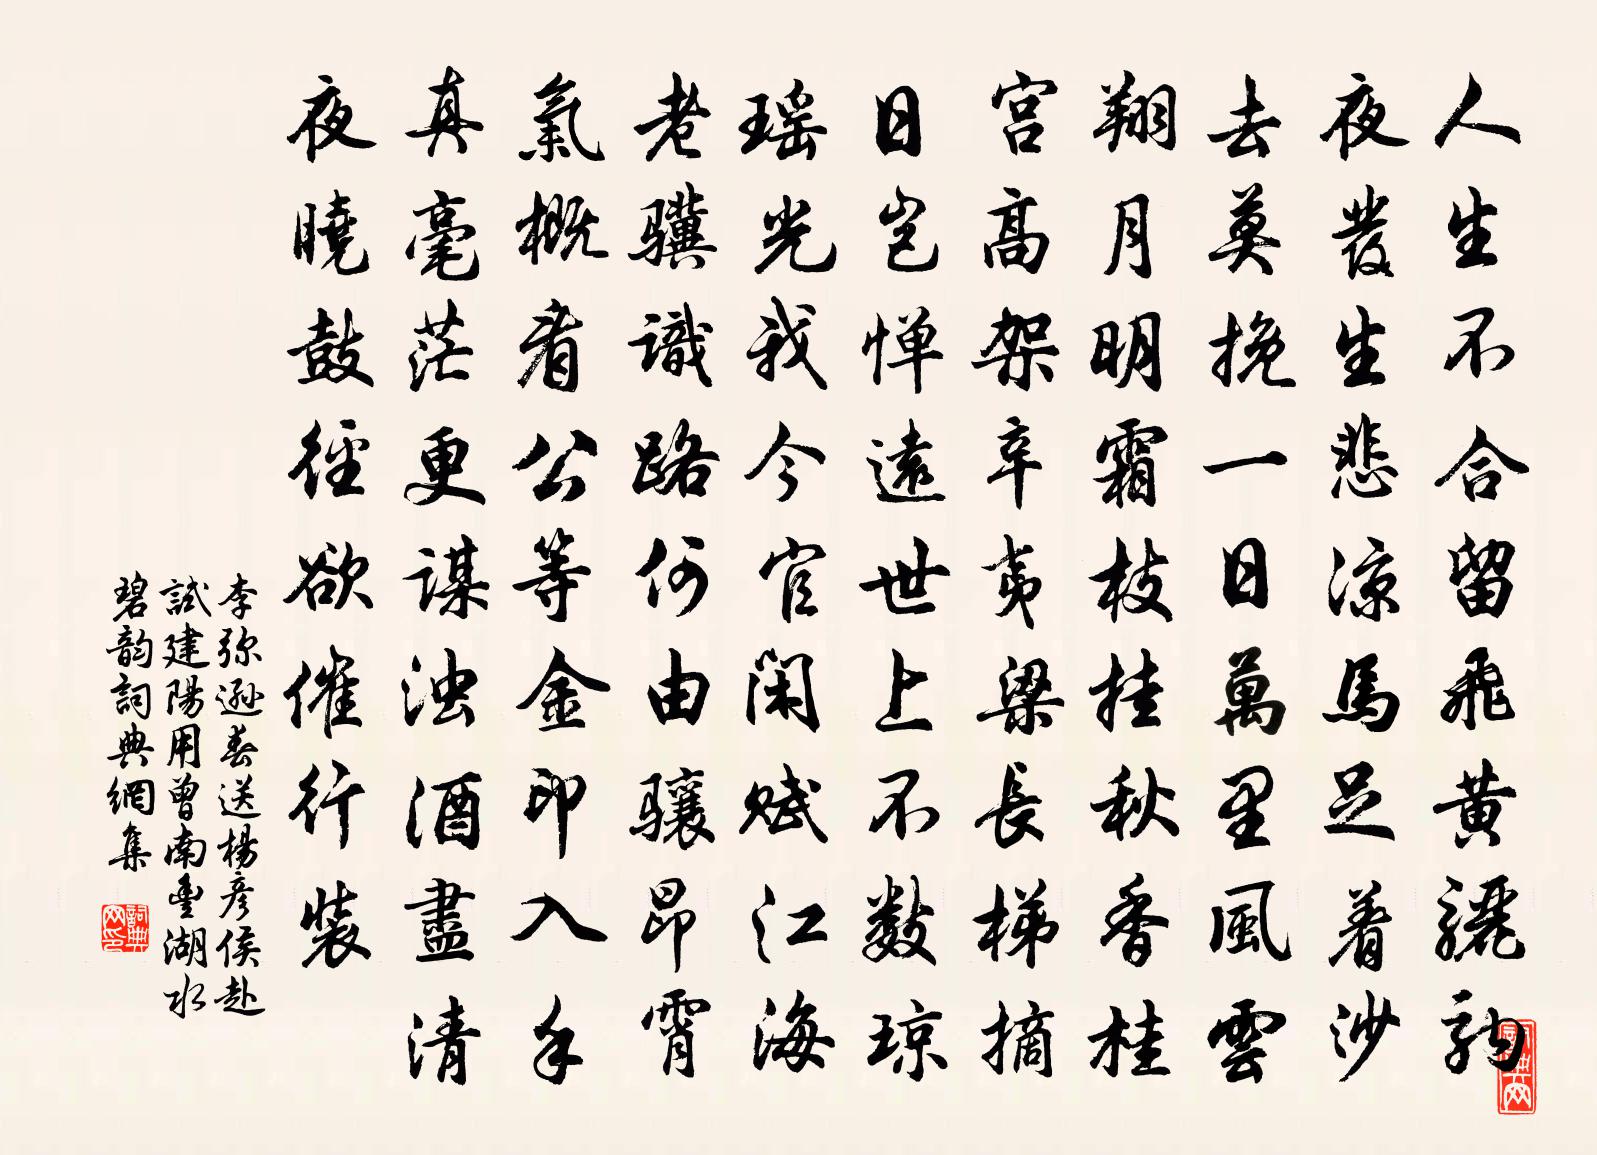 人生不合留飛黄驪駒
夜發生悲涼馬足着沙
去莫挽一日萬里風雲
翔月明霜枝挂秋香桂
宫高架辛夷梁長梯摘
日豈惮遠世上不數琼
瑶光我今官閑赋江海
老骥識路何由骧昂霄
氣概看公等金印入手
真毫茫更謀浊酒盡清
夜曉鼓徑欲催行装
李弥遜春送楊彦侯赴
試建陽用曾南豐湖水
碧韵詞典網集
詞典网印
詞典网